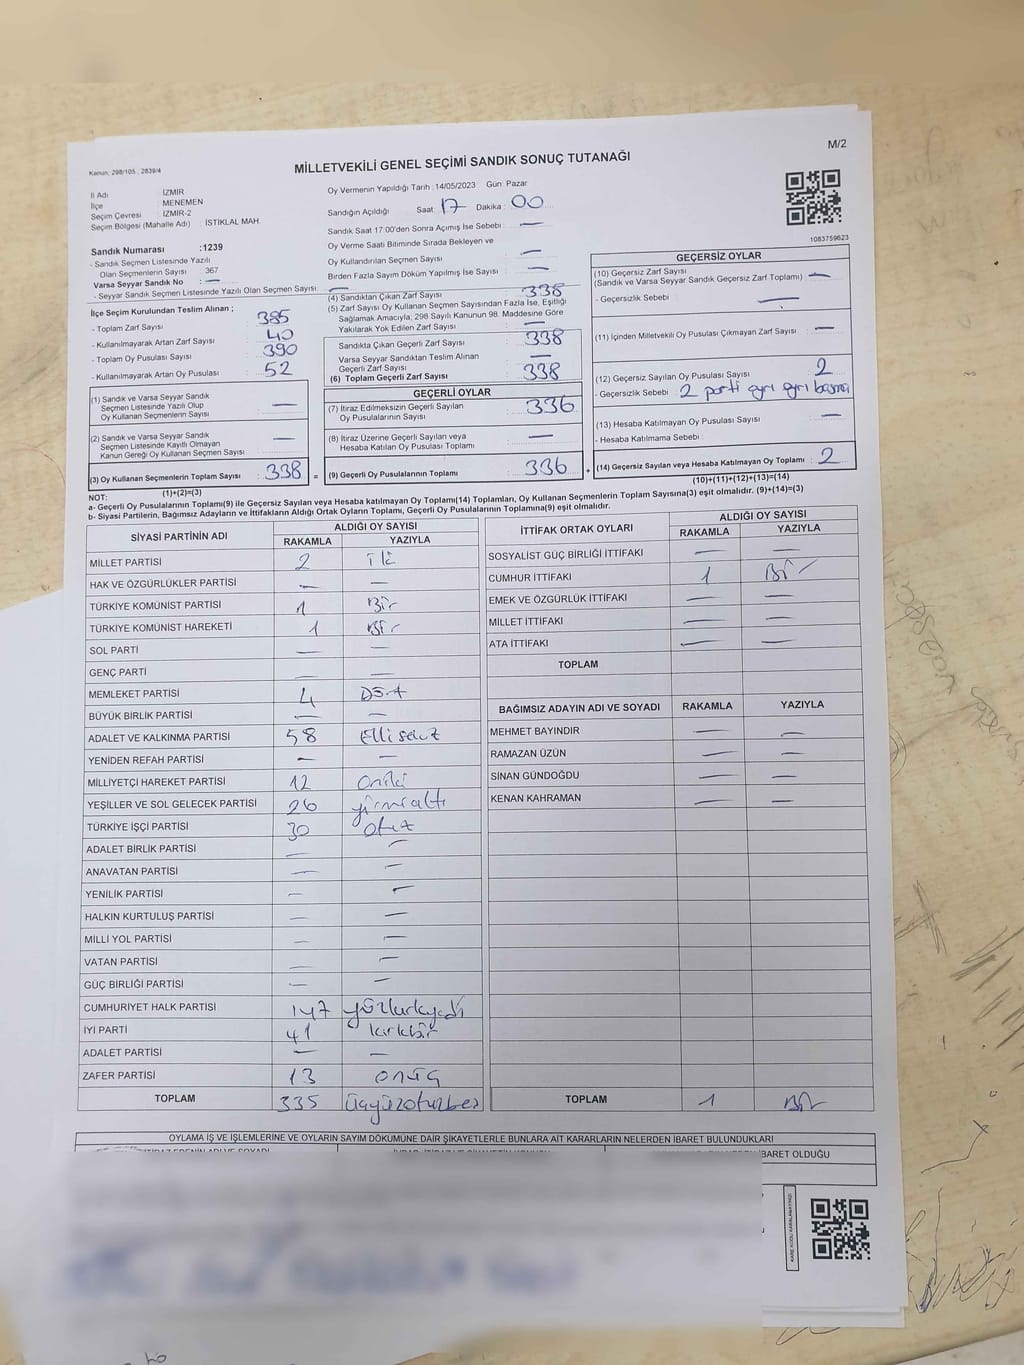 M/2
Kanun: 298/105 , 2839/4
MİLLETVEKİLİ GENEL SEÇİMİ SANDIK SONUÇ TUTANAĞI
İl Adı : İZMİR
İlçe : MENEMEN
Seçim Çevresi : İZMİR-2
Seçim Bölgesi (Mahalle Adı) : İSTİKLAL MAH.
Sandık Numarası :1239
- Sandık Seçmen Listesinde Yazılı
Olan Seçmenlerin Sayısı : 367
Varsa Seyyar Sandık No : —
- Seyyar Sandık Seçmen Listesinde Yazılı Olan Seçmen Sayısı: —
Oy Vermenin Yapıldığı Tarih : 14/05/2023 Gün: Pazar
Sandığın Açıldığı Saat: 17 Dakika: 00
Sandık Saat 17.00'den Sonra Açımış İse Sebebi : —
Oy Verme Saati Bitiminde Sırada Bekleyen ve
Oy Kullandırılan Seçmen Sayısı : —
Birden Fazla Sayım Döküm Yapılmış İse Sayısı : —
1083759623
İlçe Seçim Kurulundan Teslim Alınan ;
- Toplam Zarf Sayısı : 385
- Kullanılmayarak Artan Zarf Sayısı : 40
- Toplam Oy Pusulası Sayısı : 390
- Kullanılmayarak Artan Oy Pusulası : 52
(1) Sandık ve Varsa Seyyar Sandık
Seçmen Listesinde Yazılı Olup
Oy Kullanan Seçmenlerin Sayısı : —
(2) Sandık ve Varsa Seyyar Sandık
Seçmen Listesinde Kayıtlı Olmayan
Kanun Gereği Oy Kullanan Seçmen Sayısı : —
(3) Oy Kullanan Seçmenlerin Toplam Sayısı : 338 =
(1)+(2)=(3)
(4) Sandıktan Çıkan Zarf Sayısı : 338
(5) Zarf Sayısı Oy Kullanan Seçmen Sayısından Fazla İse, Eşitliği
Sağlamak Amacıyla, 298 Sayılı Kanunun 98. Maddesine Göre
Yakılarak Yok Edilen Zarf Sayısı : —
Sandıkta Çıkan Geçerli Zarf Sayısı : 338
Varsa Seyyar Sandıktan Teslim Alınan
Geçerli Zarf Sayısı : —
(6) Toplam Geçerli Zarf Sayısı : 338
GEÇERLİ OYLAR
(7) İtiraz Edilmeksizin Geçerli Sayılan
Oy Pusulalarının Sayısı : 336
(8) İtiraz Üzerine Geçerli Sayılan veya
Hesaba Katılan Oy Pusulası Sayısı : —
(9) Geçerli Oy Pusulalarının Toplamı : 336 +
GEÇERSİZ OYLAR
(10) Geçersiz Zarf Sayısı : —
(Sandık ve Varsa Seyyar Sandık Geçersiz Zarf Toplamı)
- Geçersizlik Sebebi : —
(11) İçinden Milletvekili Oy Pusulası Çıkmayan Zarf Sayısı : —
(12) Geçersiz Sayılan Oy Pusulası Sayısı : 2
- Geçersizlik Sebebi : 2 parti ayrı ayrı basma
(13) Hesaba Katılmayan Oy Pusulası Sayısı : —
- Hesaba Katılmama Sebebi :
(14) Geçersiz Sayılan veya Hesaba Katılmayan Oy Toplamı : 2
(10)+(11)+(12)+(13)=(14)
NOT:
a- Geçerli Oy Pusulalarının Toplamı(9) ile Geçersiz Sayılan veya Hesaba katılmayan Oy Toplamı(14) Toplamları, Oy Kullanan Seçmenlerin Toplam Sayısına(3) eşit olmalıdır. (9)+(14)=(3)
b- Siyasi Partilerin, Bağımsız Adayların ve İttifakların Aldığı Ortak Oyların Toplamı, Geçerli Oy Pusulalarının Toplamına(9) eşit olmalıdır.
SİYASİ PARTİNİN ADI ALDIĞI OY SAYISI
RAKAMLA YAZIYLA
MİLLET PARTİSİ 2 İki
HAK VE ÖZGÜRLÜKLER PARTİSİ — —
TÜRKİYE KOMÜNİST PARTİSİ 1 Bir
TÜRKİYE KOMÜNİST HAREKETİ 1 Bir
SOL PARTİ — —
GENÇ PARTİ — —
MEMLEKET PARTİSİ 4 Dört
BÜYÜK BİRLİK PARTİSİ — —
ADALET VE KALKINMA PARTİSİ 58 Ellisekiz
YENİDEN REFAH PARTİSİ — —
MİLLİYETÇİ HAREKET PARTİSİ 12 Oniki
YEŞİLLER VE SOL GELECEK PARTİSİ 26 yirmialtı
TÜRKİYE İŞÇİ PARTİSİ 30 otuz
ADALET BİRLİK PARTİSİ — —
ANAVATAN PARTİSİ — —
YENİLİK PARTİSİ — —
HALKIN KURTULUŞ PARTİSİ — —
MİLLİ YOL PARTİSİ — —
VATAN PARTİSİ — —
GÜÇ BİRLİĞİ PARTİSİ — —
CUMHURİYET HALK PARTİSİ 147 yüzkırkyedi
İYİ PARTİ 41 kırkbir
ADALET PARTİSİ — —
ZAFER PARTİSİ 13 onüç
TOPLAM 335 üçyüzotuzbeş
İTTİFAK ORTAK OYLARI ALDIĞI OY SAYISI
RAKAMLA YAZIYLA
SOSYALİST GÜÇ BİRLİĞİ İTTİFAKI — —
CUMHUR İTTİFAKI 1 Bir
EMEK VE ÖZGÜRLÜK İTTİFAKI — —
MİLLET İTTİFAKI — —
ATA İTTİFAKI — —
TOPLAM
BAĞIMSIZ ADAYIN ADI VE SOYADI RAKAMLA YAZIYLA
MEHMET BAYINDIR — —
RAMAZAN ÜZÜN — —
SİNAN GÜNDOĞDU — —
KENAN KAHRAMAN — —
TOPLAM 1 Bir
OYLAMA İŞ VE İŞLEMLERİNE VE OYLARIN SAYIM DÖKÜMÜNE DAİR ŞİKAYETLERLE BUNLARA AİT KARARLARIN NELERDEN İBARET BULUNDUKLARI
İBARET OLDUĞU
KARE KODU KARALAMAYINIZ!